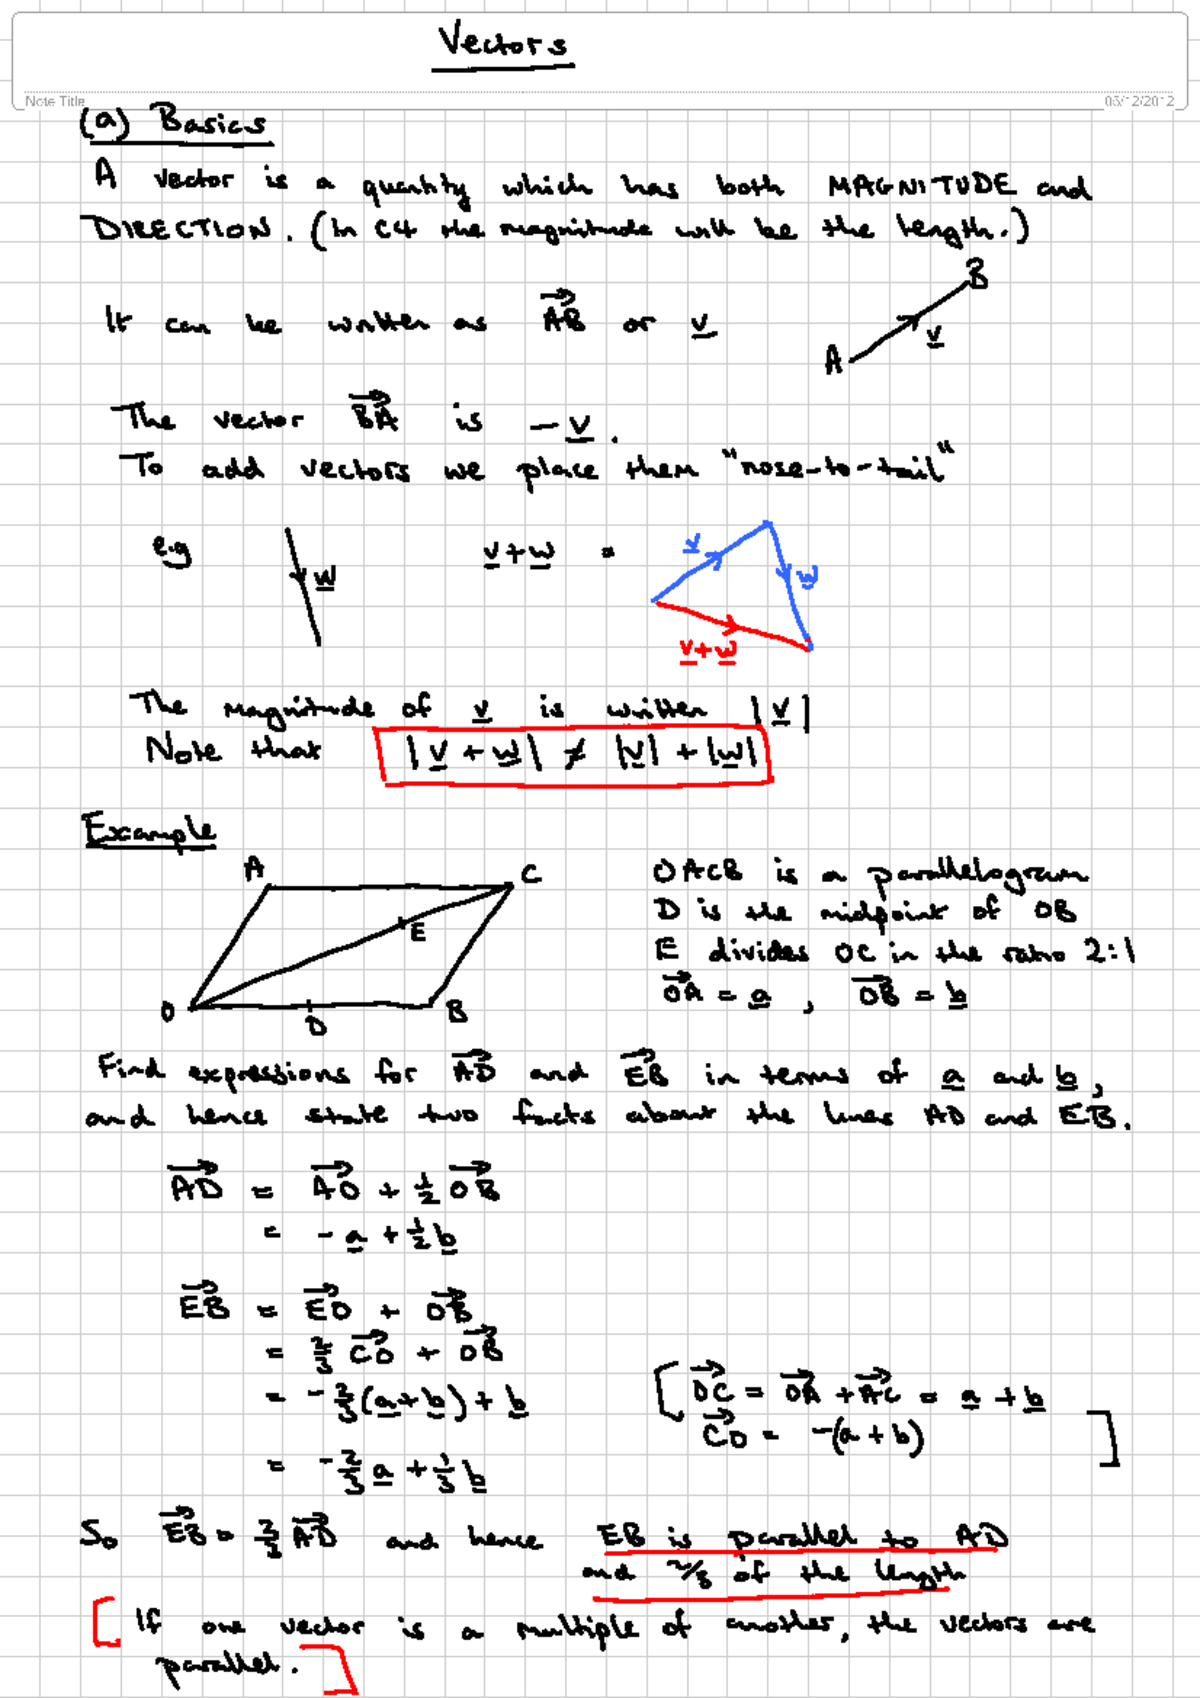 Vectors
Note Title
05/12/2012
(a) Basics
A vector is a quantity which has both MAGNITUDE and
DIRECTION. (In C4 the magnitude will be the length.)
B
It can be written as AB⃗ or v
v
A
The vector BA⃗ is -v.
To add vectors we place them "nose-to-tail"
e.g w v+w = v w
v+w
The magnitude of v is written |v|
Note that |v + w| ≠ |v| + |w|
Example
A C
E
O D B
OACB is a parallelogram
D is the midpoint of OB
E divides OC in the ratio 2:1
OA⃗ = a , OB⃗ = b
Find expressions for AD⃗ and EB⃗ in terms of a and b,
and hence state two facts about the lines AD and EB.
AD⃗ = AO⃗ + ½ OB⃗
= -a + ½ b
EB⃗ = EO⃗ + OB⃗
= ⅔ CO⃗ + OB⃗
= -⅔(a+b) + b
= -⅔ a + ⅓ b
[OC⃗ = OA⃗ + AC⃗ = a + b
CO⃗ = -(a + b)]
So EB⃗ = ⅔ AD⃗ and hence EB is parallel to AD
and 2/3 of the length
[If one vector is a multiple of another, the vectors are
parallel.]